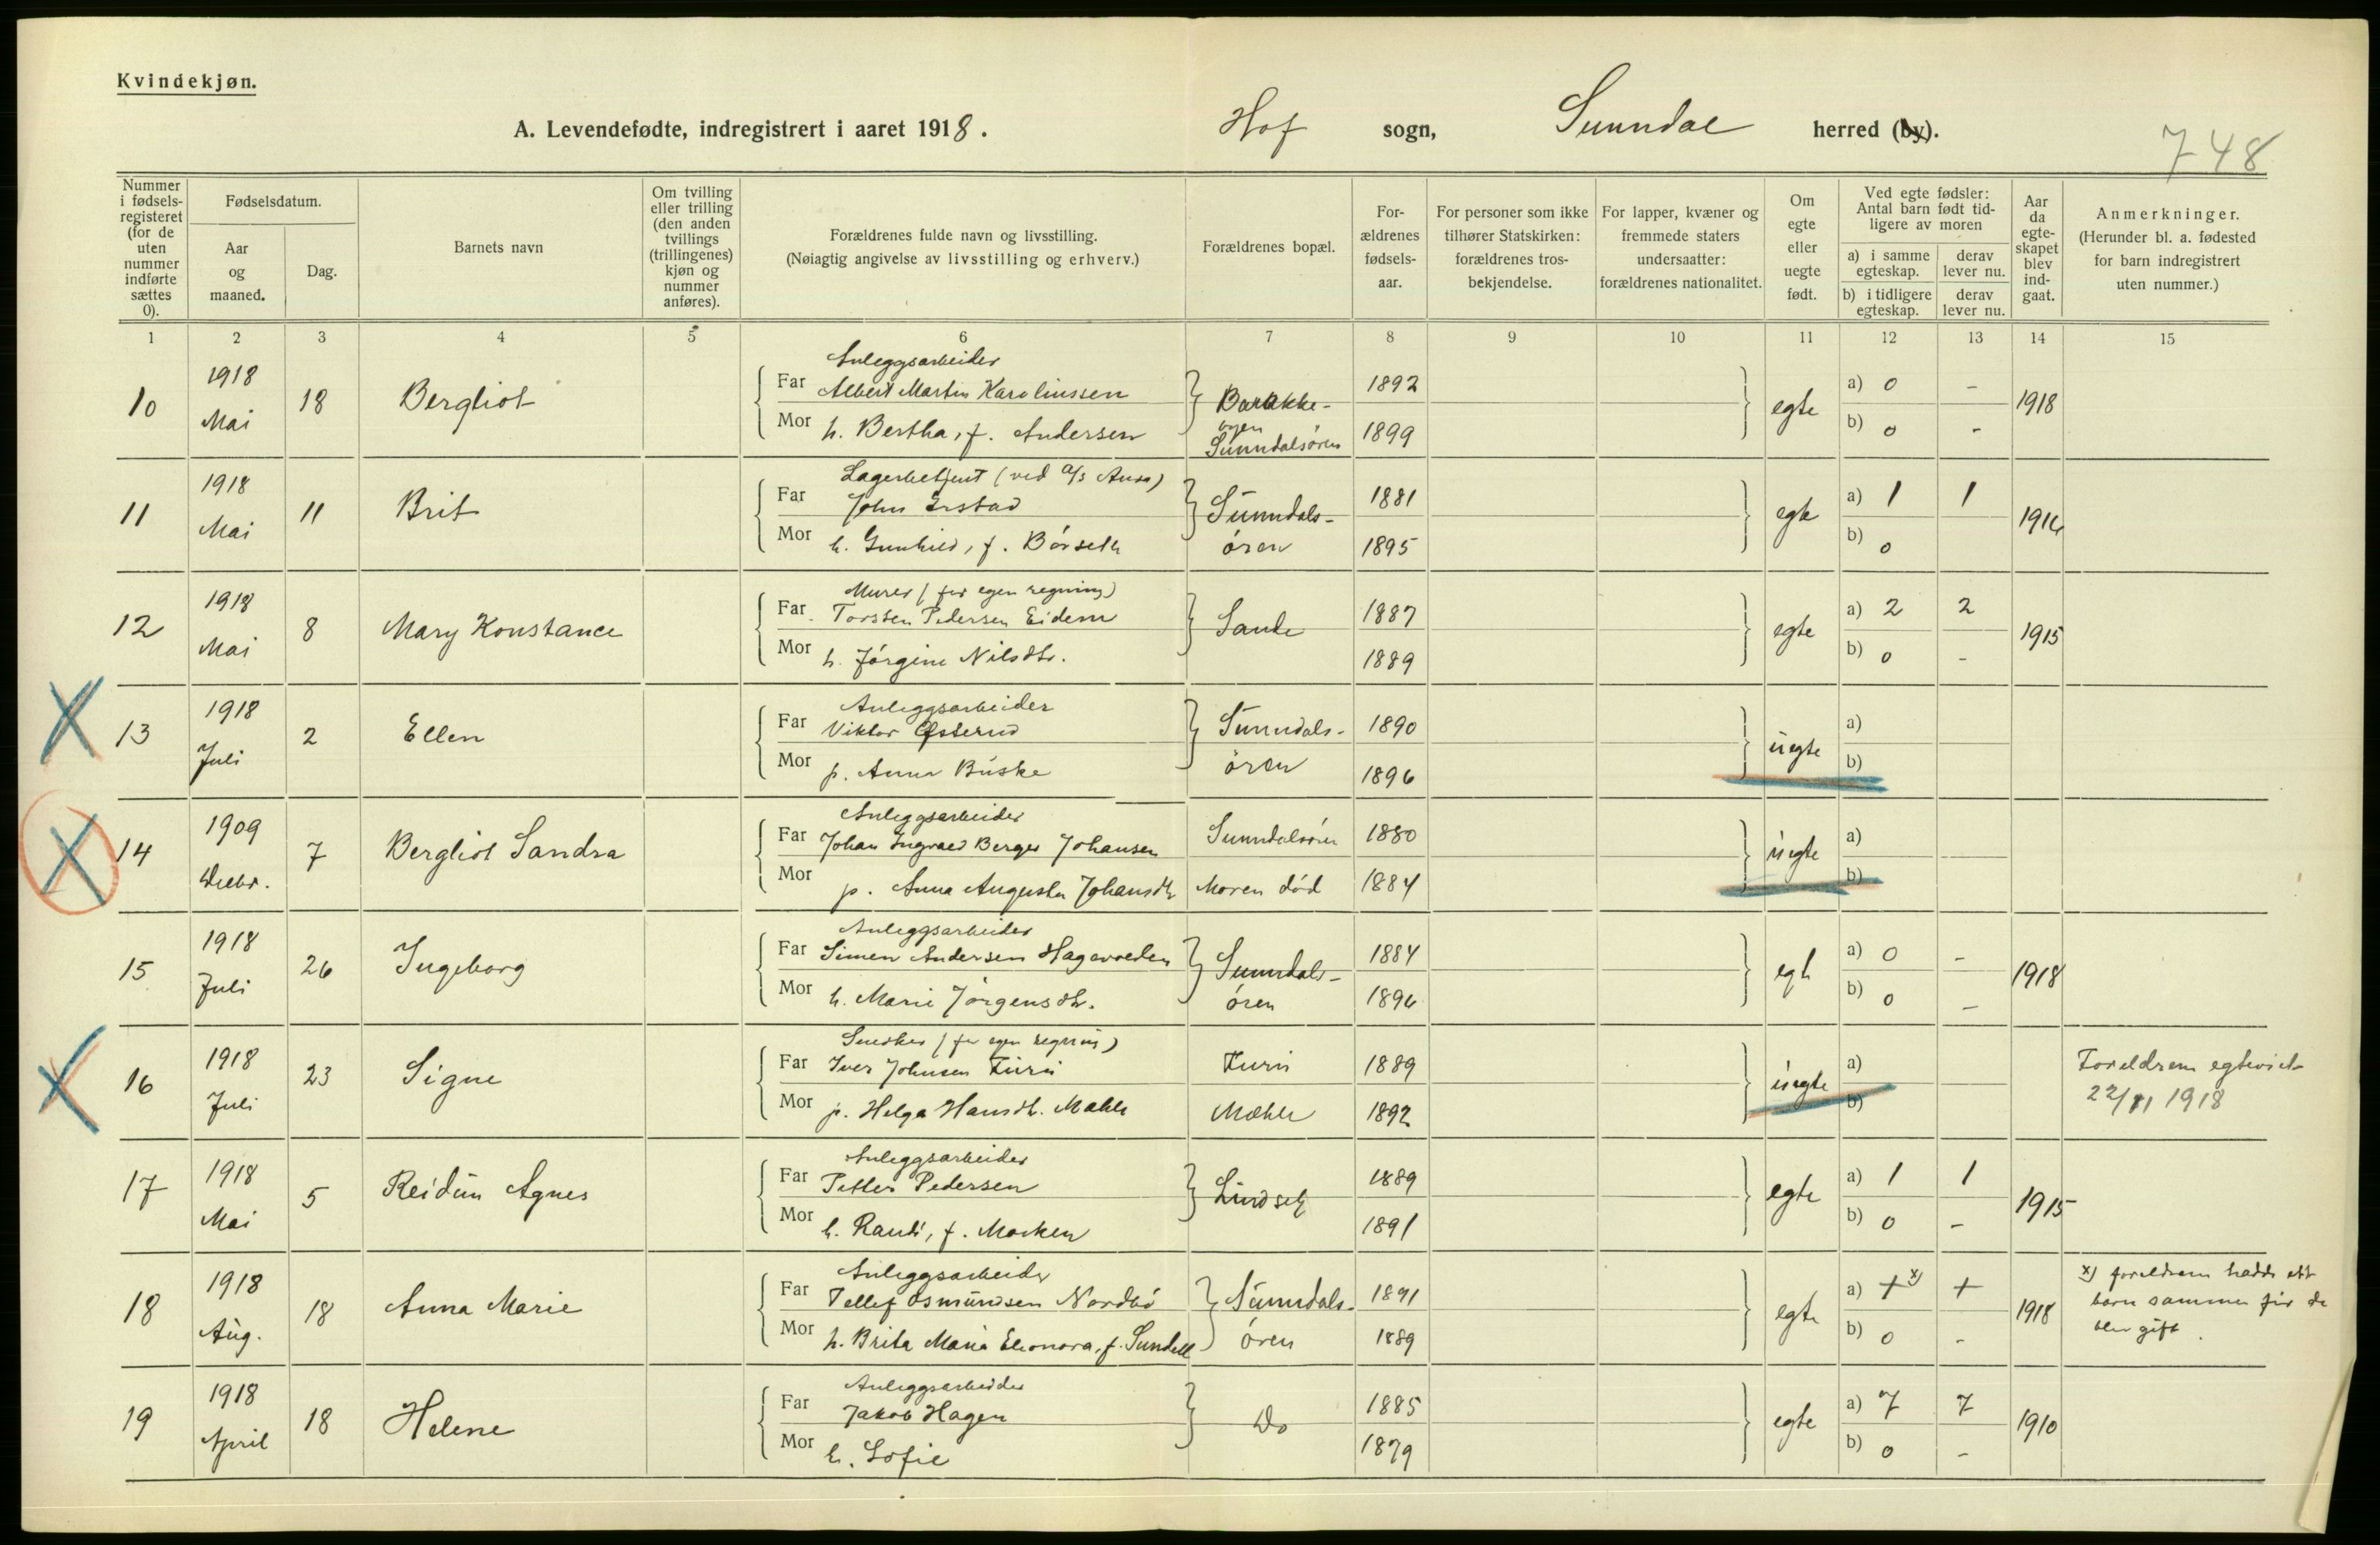 Kvindekjøn.
A. Levendefødte, indregistrert i aaret 1918. Hof sogn, Sunndal herred (by).
748
Nummer i fødselsregisteret (for de uten nummer indførte sættes 0).
Fødselsdatum.
Aar og maaned.
Dag.
Barnets navn
Om tvilling eller trilling (den anden tvillings (trillingenes) kjøn og nummer anføres).
Forældrenes fulde navn og livsstilling.
(Nøiagtig angivelse av livsstilling og erhverv.)
Forældrenes bopæl.
For-
ældrenes
fødsels-
aar.
For personer som ikke
tilhører Statskirken:
forældrenes tros-
bekjendelse.
For lapper, kvæner og
fremmede staters
undersaatter:
forældrenes nationalitet.
Om
egte
eller
uegte
født.
Ved egte fødsler:
Antal barn født tid-
ligere av moren
a) i samme egteskap.
derav lever nu.
b) i tidligere egteskap.
derav lever nu.
Aar
da
egte-
skapet
blev
ind-
gaat.
Anmerkninger.
(Herunder bl. a. fødested
for barn indregistrert
uten nummer.)
1 2 3 4 5 6 7 8 9 10 11 12 13 14 15
Anleggsarbeider
10 1918 Mai 18 Bergliot Far Albert Martin Karolinssen Barakke- 1892 egte a) 0 - 1918
Mor h. Bertha, f. Andersen byen Sunndalsøren 1899 b) 0 -
Lagerbetjent (ved A/s Aura)
11 1918 Mai 11 Brit Far John Erstad Sunndals- 1881 egte a) 1 1 1916
Mor h. Gunhild, f. Børseth øren 1895 b) 0
Murer (for egen regning)
12 1918 Mai 8 Mary Konstance Far Torsten Pedersen Eidem Sande 1887 egte a) 2 2 1915
Mor h. Jørgine Nilsdtr. 1889 b) 0 -
Anleggsarbeider
13 1918 Juli 2 Ellen Far Viktor Østerud Sunndals- 1890 uegte a)
Mor p. Anna Buske øren 1896 b)
Anleggsarbeider
14 1909 Decbr. 7 Bergliot Sandra Far Johan Ingvald Berger Johansen Sunndalsøren 1880 uegte a)
Mor p. Anna Augusta Johansdtr Moren død 1884 b)
Anleggsarbeider
15 1918 Juli 26 Ingeborg Far Simen Andersen Sunndals- 1884 egte a) 0 - 1918
Mor h. Marie Jørgensdtr. øren 1896 b) 0 -
Snedker (for egen regning)
16 1918 Juli 23 Signe Far Iver Johnsen Furu Furu 1889 uegte a) Foreldrene egteviet
Mor p. Helga Hansdtr. Mæhle Mæhle 1892 b) 22/11 1918
Anleggsarbeider
17 1918 Mai 5 Reidun Agnes Far Petter Pedersen Lindset 1889 egte a) 1 1 1915
Mor h. Randi, f. Morken 1891 b) 0 -
Anleggsarbeider
18 1918 Aug. 18 Anna Marie Far Tellef Osmundsen Nordbø Sunndals- 1891 egte a) + x) + 1918 x) foreldrene hadde ett
Mor h. Brita Maria Eleonora, f. Sundell øren 1889 b) 0 - barn sammen før de
blev gift.
Anleggsarbeider
19 1918 April 18 Helene Far Jakob Hagen Do 1885 egte a) 7 7 1910
Mor h. Sofie 1879 b) 0 -